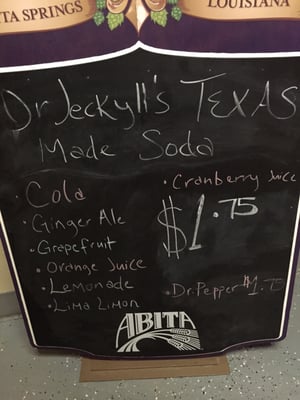 TA SPRINGS LOUISIANA
Dr Jeckyll's TEXAS
Made Soda
• Cola
• Ginger Ale
• Grapefruit
• Orange Juice
• Lemonade
• Lima Limon
• Cranberry Juice
$1.75
• Dr. Pepper $1.75
ABITA